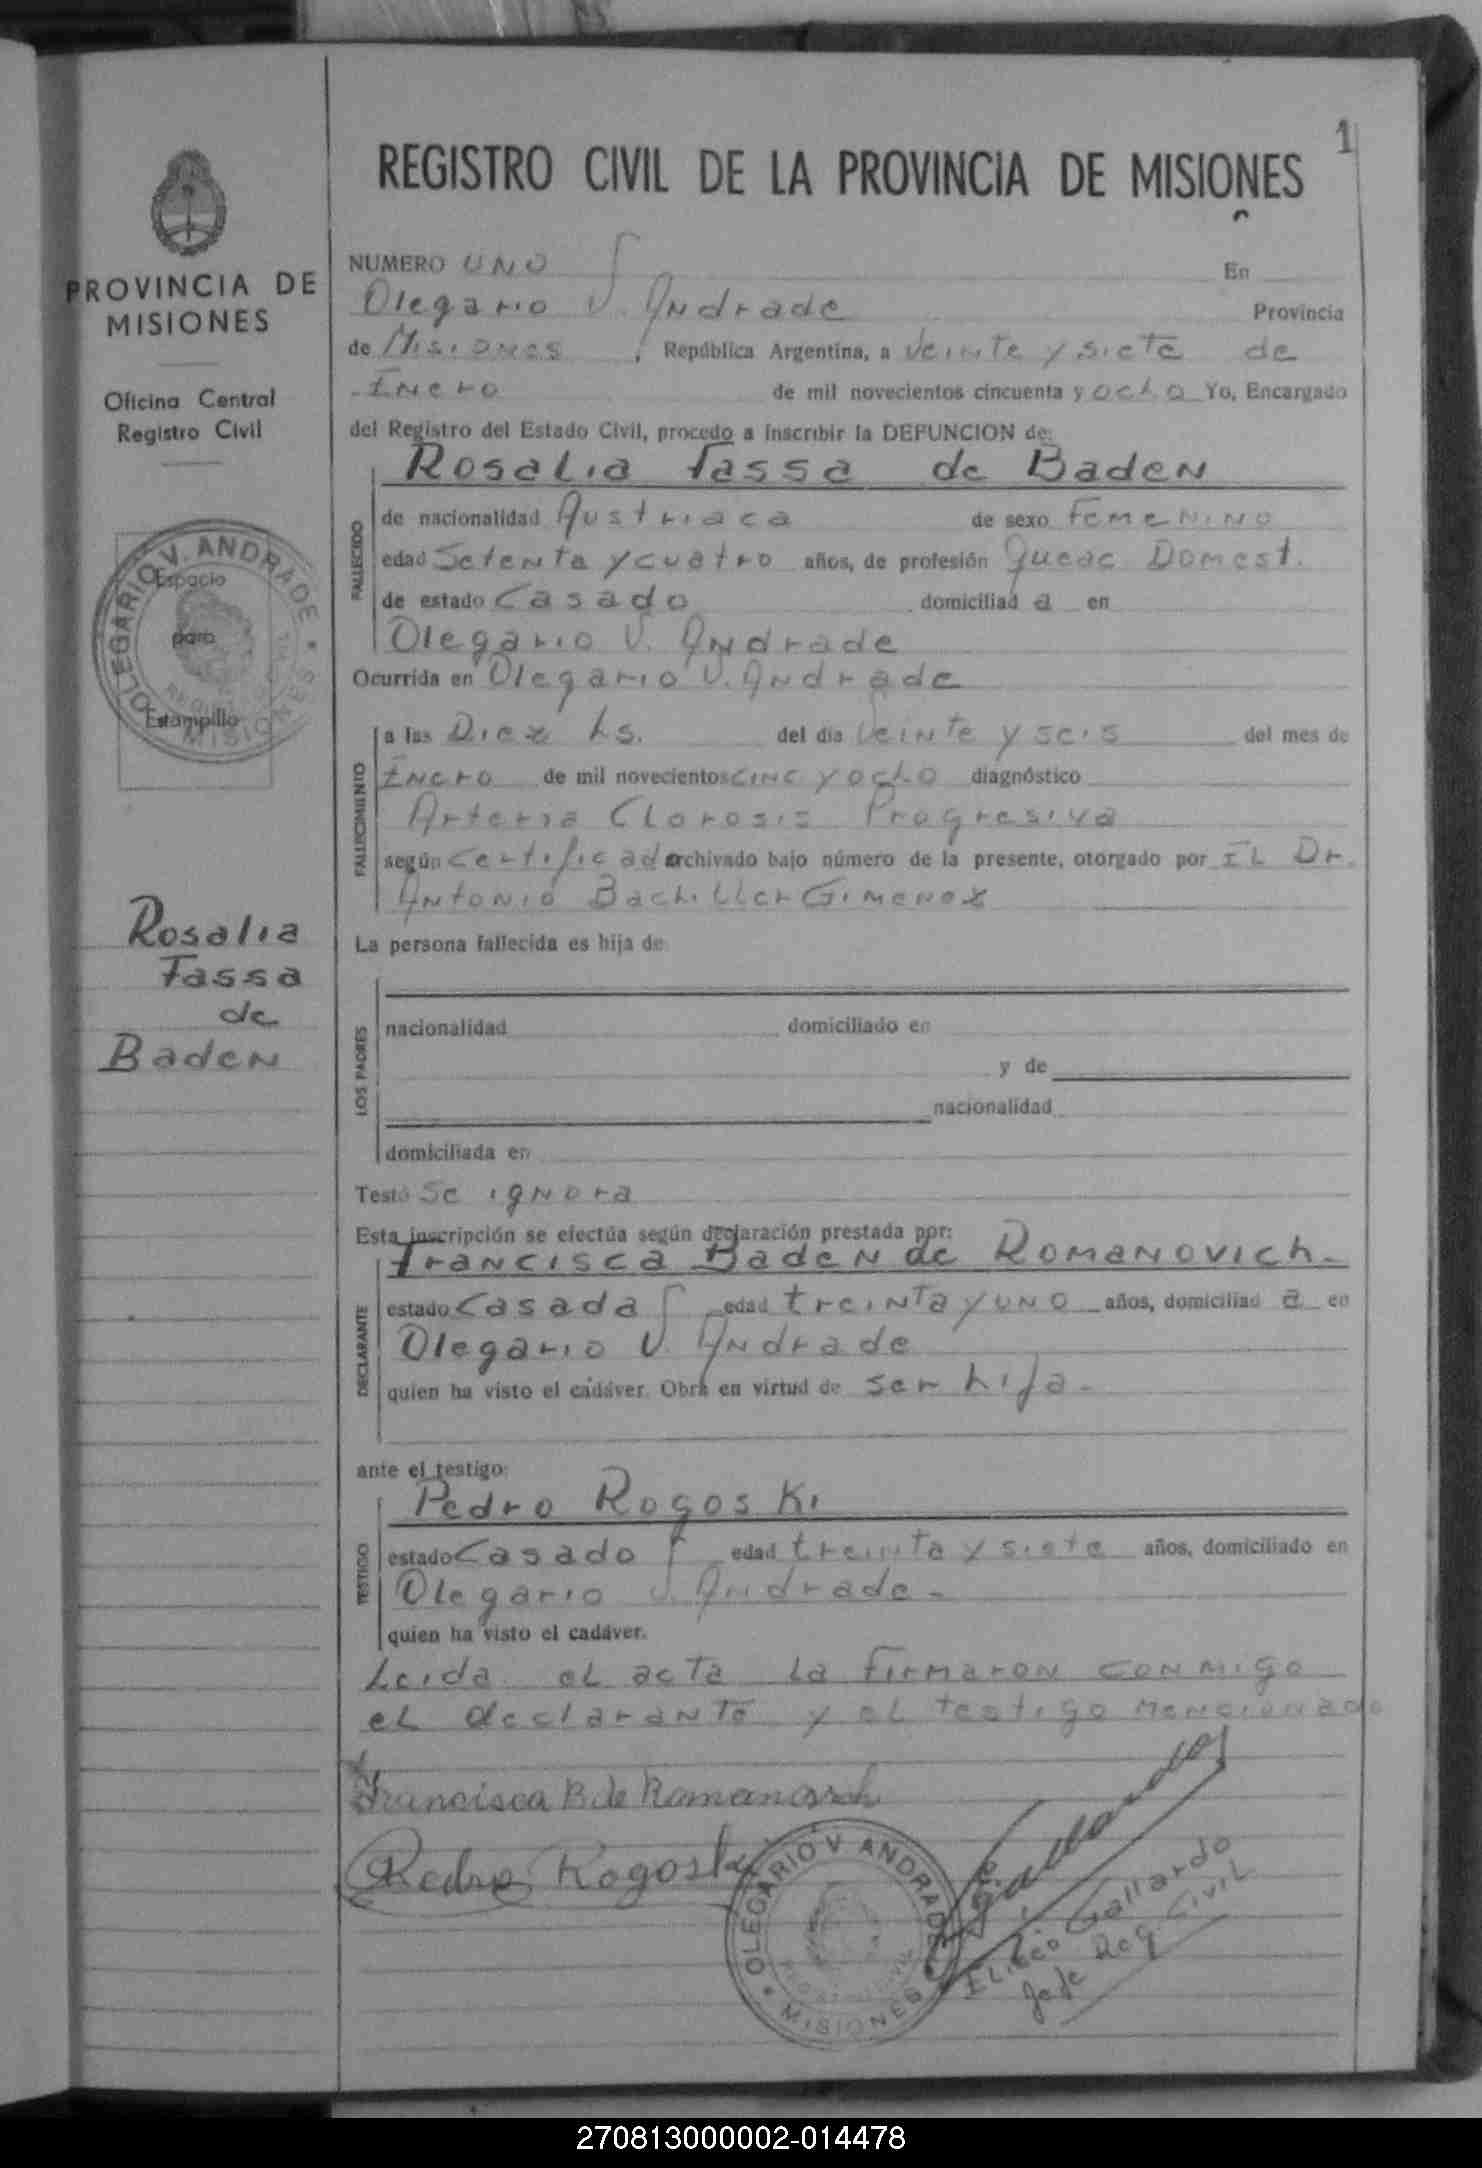 1
REGISTRO CIVIL DE LA PROVINCIA DE MISIONES
PROVINCIA DE
MISIONES
Oficina Central
Registro Civil
OLEGARIO V. ANDRADE
MISIONES
Espacio
para
Estampilla
Rosalia
Tassa
de
Baden
NUMERO UNO En
Olegario V. Andrade Provincia
de Misiones, República Argentina, a Veinte y siete de
Enero de mil novecientos cincuenta y ocho Yo, Encargado
del Registro del Estado Civil, procedo a inscribir la DEFUNCION de:
Rosalia Tassa de Baden
FALLECIDO
de nacionalidad Austriaca de sexo Femenino
edad Setenta y cuatro años, de profesión Queac Domest.
de estado Casado domiciliad a en
Olegario V. Andrade
Ocurrida en Olegario V. Andrade
FALLECIMIENTO
a las Diez hs. del día Veinte y seis del mes de
Enero de mil novecientos cinc y ocho diagnóstico
Arteria Clorosis Progresiva
según certificado archivado bajo número de la presente, otorgado por EL Dr.
Antonio Bachiller Gimenez
La persona fallecida es hija de:
LOS PADRES
nacionalidad domiciliado en
y de
nacionalidad
domiciliada en
Testó Se ignora
Esta inscripción se efectúa según declaración prestada por:
Francisca Baden de Romanovich.
DECLARANTE
estado Casada edad treinta y uno años, domiciliad a en
Olegario V. Andrade
quien ha visto el cadáver. Obra en virtud de ser hija.
ante el testigo:
Pedro Rogoski
TESTIGO
estado Casado edad treinta y siete años, domiciliado en
Olegario V. Andrade.
quien ha visto el cadáver.
Leida el acta la firmaron conmigo
el declarante y el testigo mencionado
Francisca B. de Romanovich
Pedro Rogoski
OLEGARIO V. ANDRADE
REGISTRO CIVIL
MISIONES
Eliseo Gallardo
Jefe Reg. Civil
270813000002-014478